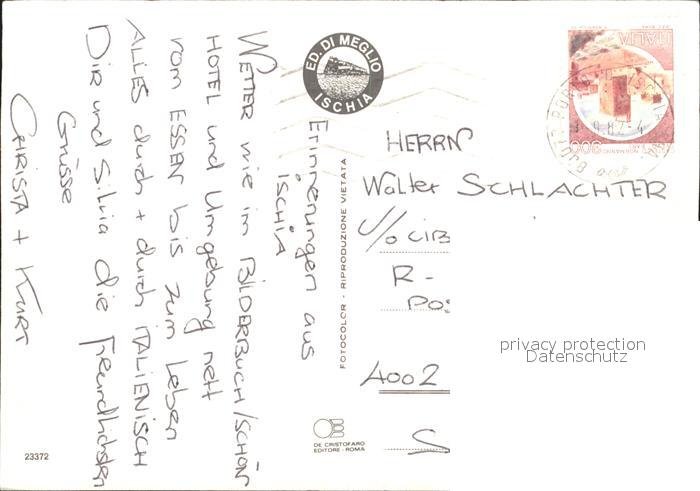 Erinnerungen aus
ISCHIA
WETTER wie im BILDERBUCH/SCHÖN
HOTEL und Umgebung nett
vom ESSEN bis zum Leben
ALLES durch + durch ITALIENISCH
Dir und Silvia die freundlichsten
Grüsse
CHRISTA + KURT
ED. DI MEGLIO
ISCHIA
FOTOCOLOR - RIPRODUZIONE VIETATA
DE CRISTOFARO
EDITORE - ROMA
23372
ITALIA
300
HERRN
Walter SCHLACHTER
c/o CIB
R-
Po
4002
S
privacy protection
Datenschutz